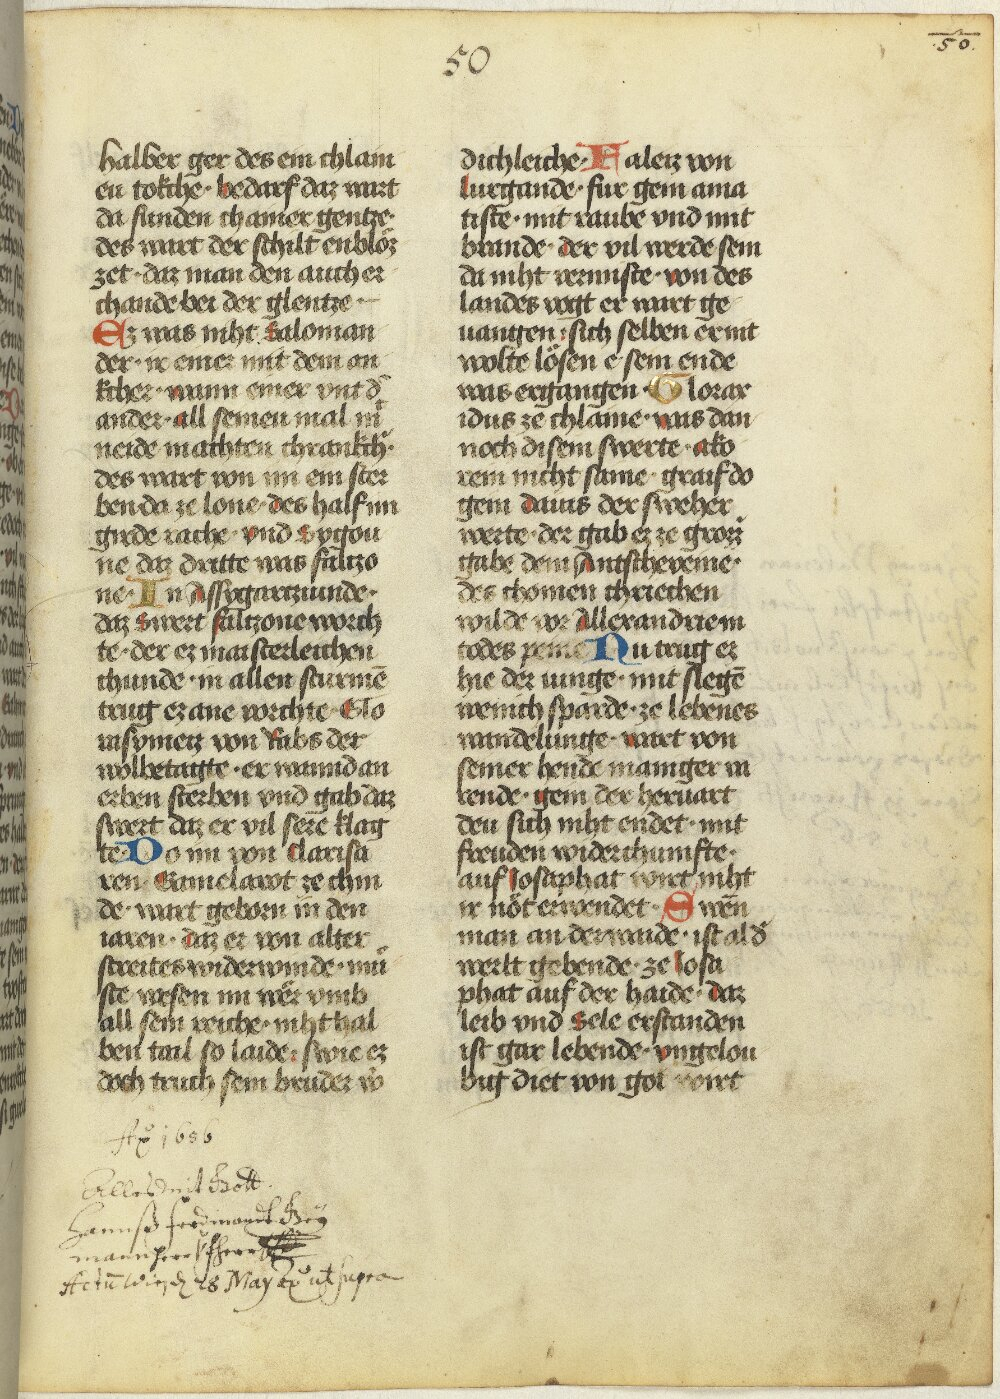 50
50.
halber ger des ein chlam
eu tokche · bedarf daz wart
da funden chamer gentze ·
des wart der schilt enblöz
zet · daz man den auch er
chande bei der glentze
Ez was niht Saloman
der · ir einer mit dem an
kcher · wann einer vnt d
ander · all seineu mal in
neide machten chrankch
des wart von im ein ster
ben da ze lone · des half im
girde rache · vnd Sygou
ne daz dritte was saltzo
ne · In Assygartziunde ·
daz Swert saltzone worch
te · der ez maisterleichen
chunde · in allen sturmē
trug ez ane vorchte · Glo
risymetz von Rabs der
wolbetagte · er wannd an
erben sterben vnd gab daz
swert daz er vil sere klag
te · Do im von Clarisa
ren · Gamelarot ze chin
de · wart geborn in den
iaren · daz er von alter
streites widerwinde · mů
ste wesen im wer vmb
all sein reiche · niht hal
ben tail so laide : swie ez
doch truch sein bruder
dichleiche · Faletz von
lurgande · fur gein ama
tiste · mit raube vnd mit
brande · der vil werde sein
da niht vermiste · von des
landes vogt er wart ge
uangen : sich selben er nit
wolte lösen e sein ende
was ergangen · Glorar
idus ze chlame · was dan
noch disem swerte · ako
rein nicht same · graif do
gein dauis der sweher
werte · der gab ez ze grozz
gabe dem Antscheveine ·
des chomen chriechen
wilde vor Allexandrie in
todes peine Nu trug ez
hie der iunge · mit slegē
wenich sparde · ze lebenes
wandelunge · wart von
seiner hende maniger va
rende · gein der heruart
deu sich niht endet · mit
freuden widerchumfte ·
auf Josaphat wirt niht
ir nöt erwendet · Swen
man an der waide · ist al d
werlt gebende · ze Josa
phat auf der haide · daz
leib vnd Sele erstanden
ist gar lebende · vngelou
bug diet von got wirt
Ao 1686
Alles mit Gott.
Hannß Ferdinandt
28 May Ao ut supra